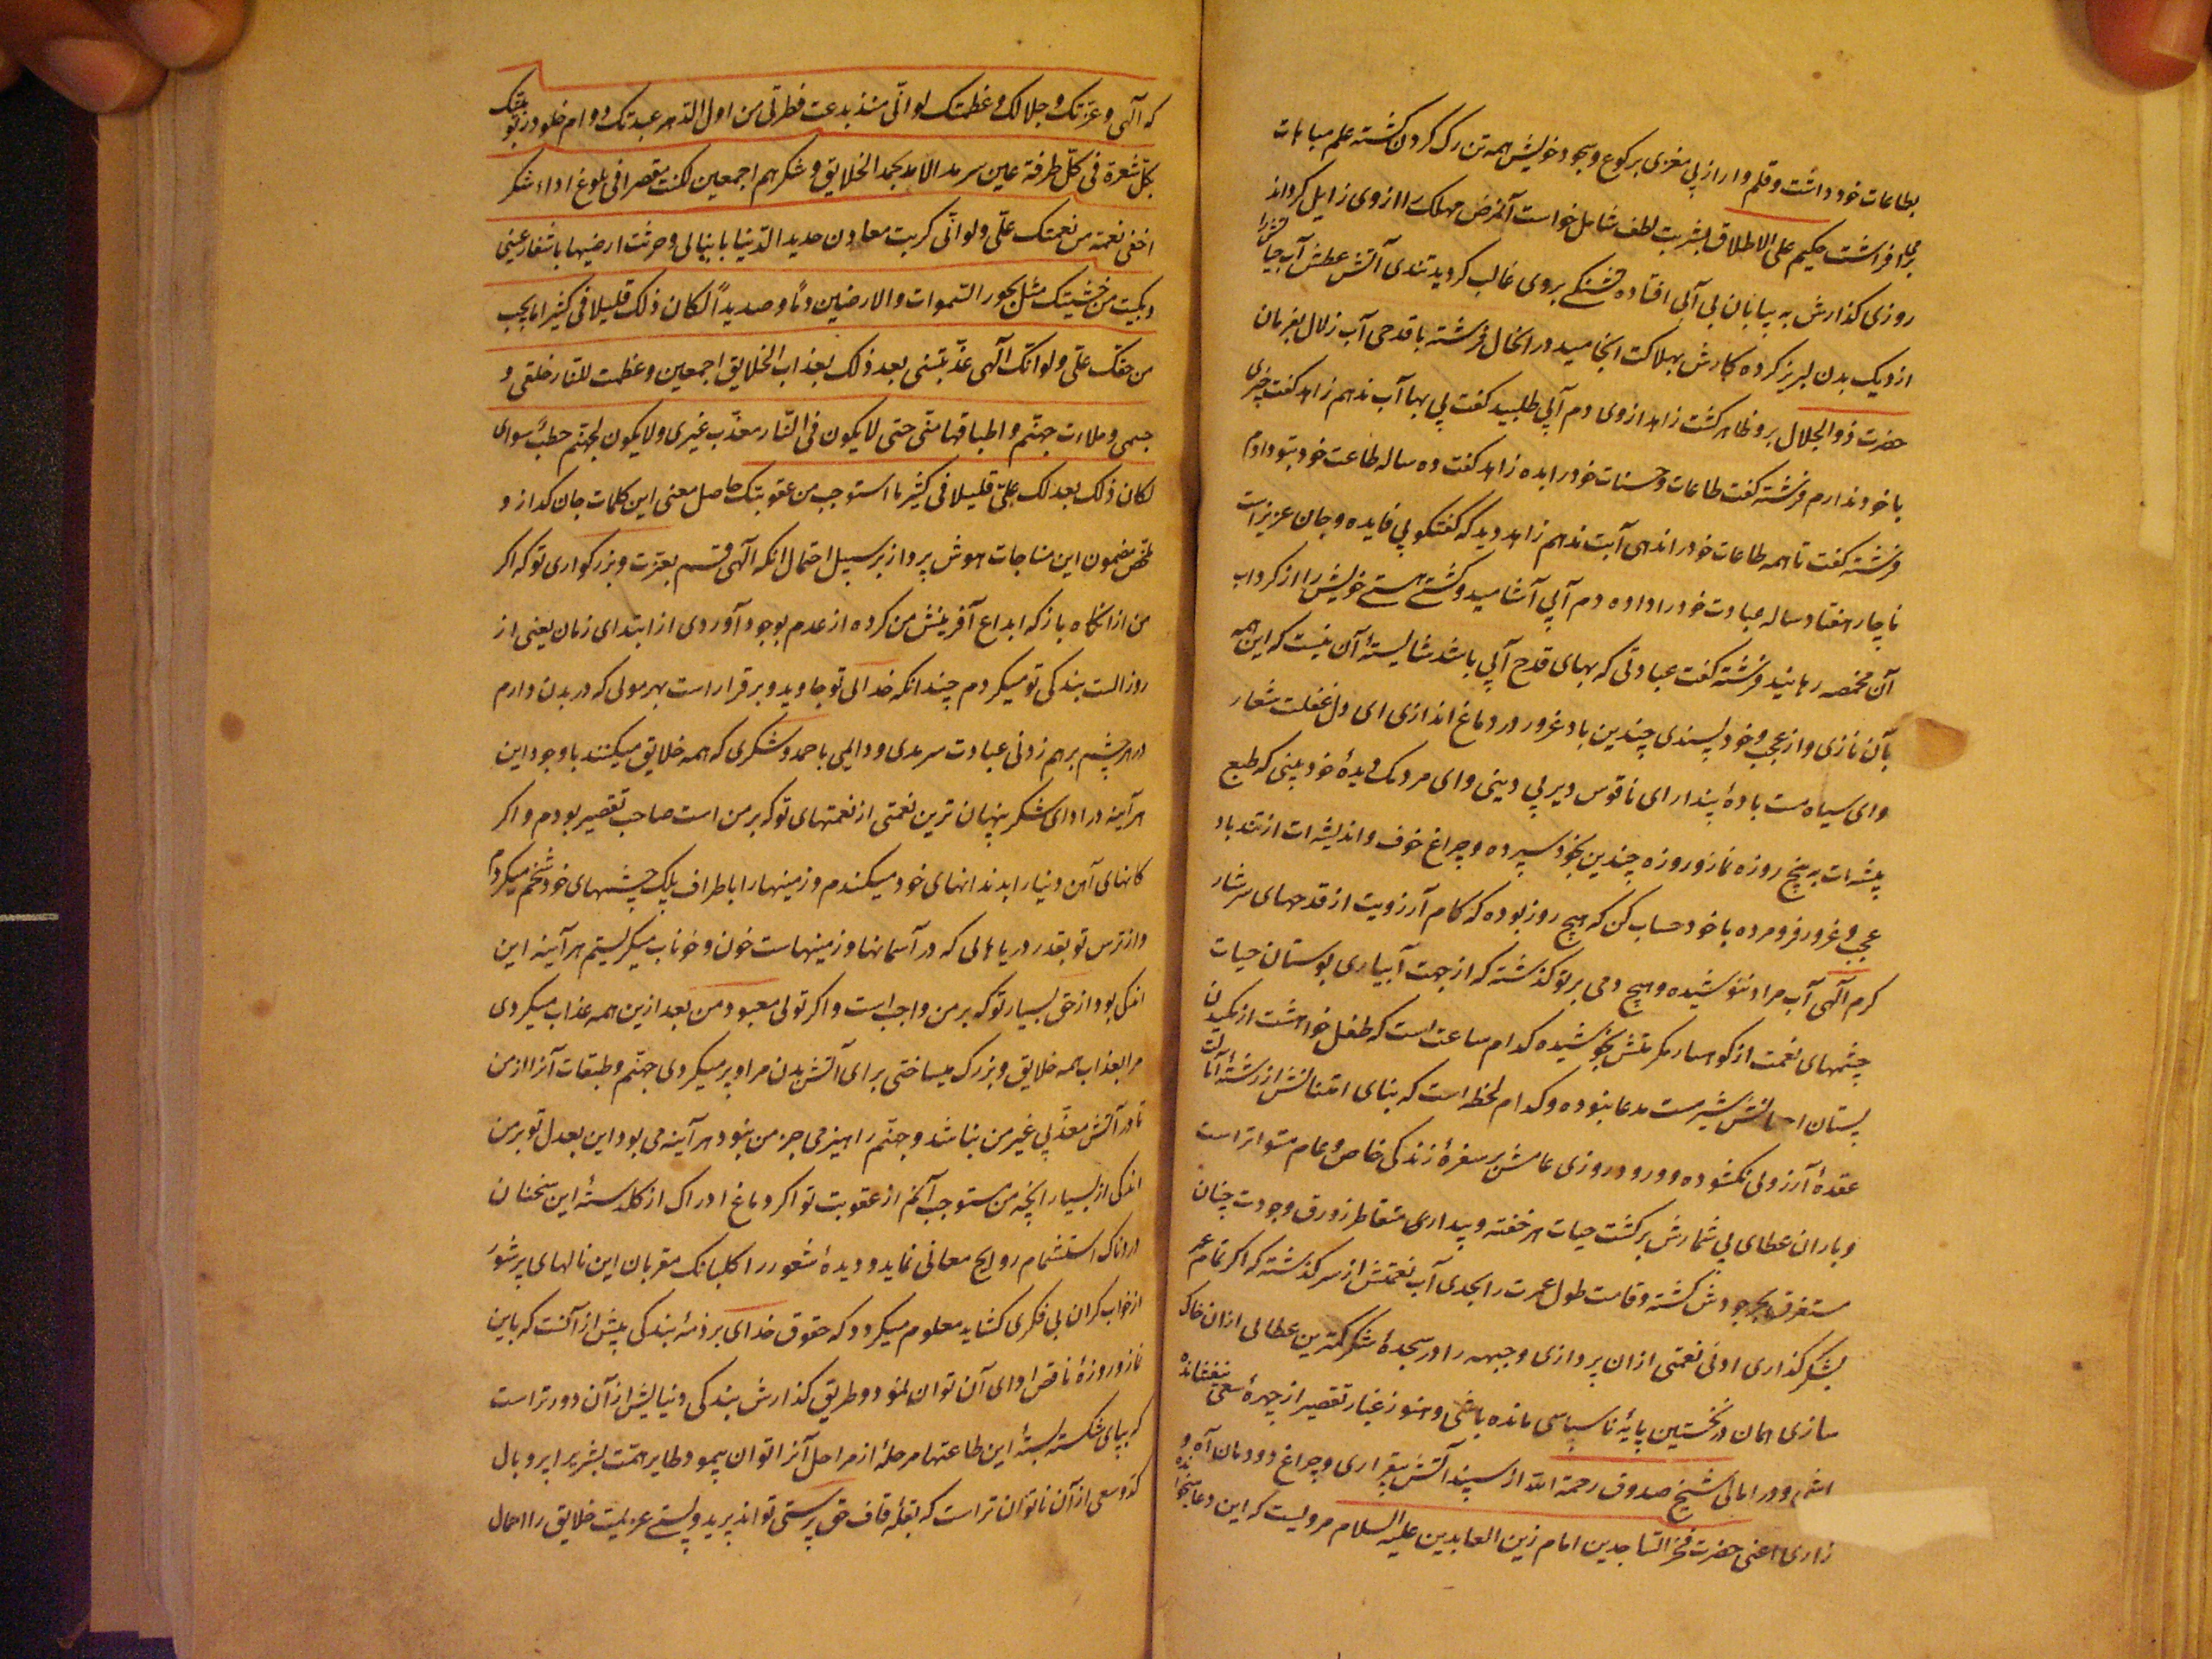 بطاعات خود داشت و قلم وار از پی مغزی برکوع و سجود خویش همه تن رک کردن کشته علم مباهات
برمی افراشت حکیم علی الاطلاق بشربت لطف شامل خواست آن مرض مهلک را از وی زایل کرداند
روزی کذارش به بیابان بی آبی افتاده تشنکی بر وی غالب کردید تندی آتش عطش آب حیاتش را
از دیک بدن لبریز کرده کارش بهلاکت انجامید در انحال فرشته با قدحی آب زلال بفرمان
حضرت ذو الجلال برو ظاهر کشت زاهد از وی دم آبی طلبید کفت بی بها آب ندهم زاهد کفت چیزی
با خود ندارم فرشته کفت طاعات و حسنات خود را بده زاهد کفت ده ساله طاعت خود بتو دادم
فرشته کفت تا همه طاعات خود را ندهی آبت ندهم زاهد دید که کفتکو بی فایده و جان عزیز است
ناچار هفتاد ساله عبادت خود را داده دم آبی آشامید و کشتی هستی خویش را از کرداب
آن مخمصه رهانید فرشته کفت عبادتی که بهای قدح آبی باشد شایستهٔ آن نیست که این همه
بآن نازی و از عجب و خود پسندی چندین باد غرور در دماغ اندازی ای دل غفلت شعار
وای سیاه مست بادهٔ پندار ای ناقوس دیر بی دینی وای مردمک دیدهٔ خود بینی که طبع
پیشه ات به پنج روزه نماز و روزه چندین بخود سپرده و چراغ خوف و اندیشه ات از تند باد
عجب و غرور فرو مرده با خود حساب کن که هیچ روز بوده که کام آرزویت از قدحهای سرشار
کرم الهی آب مراد ننوشیده و هیچ دمی بر تو کذشته که از جهت آبیاری بوستان حیات
چشمهای نعمت از کوهسار مکرمتش نجوشیده کدام ساعت است که طفل خواهشت از مکیدن
پستان احسانش شیر مست مدعا نبوده و کدام لحظه است که بنای امتنانش از رشتهٔ آمالت
عقدهٔ آرزوئی نکشوده و ورود روزی عامش بر سفرهٔ زندکی خاص و عام متواتر است
و باران عطای بی شمارش بر کشت حیات هر خفته و بیداری متقاطر زورق وجودت چنان
مستغرق بحر جودش کشته و قامت طول عمرت را بحدی آب نعمتش از سر کذشته که اکر تمام عمر
بشکر کذاری ادنی نعمتی ازان پردازی و جبهه را در سجدهٔ شکر کمترین عطائی ازان خاک
سازی همان در نخستین پایهٔ ناسپاسی مانده باشی و هنوز غبار تقصیر از چهرهٔ سعی نیفشانده
و در امالی شیخ صدوق رحمة الله از سپند آتش بیقراری و چراغ دودمان آه و
زاری اعنی حضرت فخر الساجدین امام زین العابدین علیه السلام مرویست که این دعا میخوانده
که الهی و عزتک و جلالک و عظمتک لو انّی منذ بدعت فطرتی من اول الدهر عبدتک دوام خلود ربوبیتک
بکلّ شعرة فی کلّ طرفة عین سرمد الابد بحمد الخلایق و شکرهم اجمعین لکنت مقصرا فی بلوغ اداء شکر
اخفی نعمة من نعمتک علیّ و لو انّی کربت معادن حدید الدّنیا بانیابی و حرثت ارضیها باشفار عینی
و بکیت من خشیتک مثل بحور السّموات والارضین دمًا و صدیداً لکان ذلک قلیلا فی کثیر ما یجب
من حقک علیّ و لو انّک الهی عذّبتنی بعد ذلک بعذاب الخلایق اجمعین و عظمت للنار خلقی و
جسمی و ملات جهنّم و اطباقها منّی حتی لا یکون فی النّار معذّب غیری و لا یکون لجهنّم حطبٌ سوای
لکان ذلک بعدلک علیّ قلیلا فی کثیر ما استوجب من عقوبتک حاصل معنی این کلمات جان کداز و
ملخص مضمون این مناجات هوش پرداز بر سبیل احتمال انکه الهی قسم بعزت و بزرکواری تو که اکر
من از انکاه باز که ابداع آفرینش من کرده از عدم بوجود آوردی از ابتدای زمان یعنی از
روز الست بندکی تو میکردم چندانکه خدائی تو جاوید و برقرار است بهر موئی که در بدن دارم
در هر چشم برهم زدنی عبادت سرمدی و دائمی با حمد و شکری که همه خلایق میکنند با وجود این
هر آینه در ادای شکر پنهان ترین نعمتی از نعمتهای تو که بر من است صاحب تقصیر بودم و اکر
کانهای آهن دنیا را بدندانهای خود میکندم و زمینها را باطراف پلک چشمهای خود شخم میکردم
و از ترس تو بقدر دریاهائی که در آسمانها و زمینهاست خون و خوناب میکریستم هر آینه این
اندکی بود از حق بسیار تو که بر من واجب است و اکر تو ای معبود من بعد ازین همه عذاب میکردی
مرا بعذاب همه خلایق و بزرک میساختی برای آتش بدن مرا و پر میکردی جهنّم و طبقات آنرا از من
تا در آتش معذّبی غیر من نباشد و جهنّم را هیزمی جز من نبود هر آینه می بود این بعدل تو بر من
اندکی از بسیار انچه من مستوجب آنم از عقوبت تو اکر دماغ ادراک از کلدستهٔ این سخنان
دردناک استشمام روایح معانی نماید و دیدهٔ شعور را کلبانک مقربان این نالهای پر شور
از خواب کران بی فکری کشاید معلوم میکردد که حقوق خدای بر ذمهٔ بندکی بیش از آنست که باین
نماز و روزهٔ ناقص ادای آن توان نمود و طریق کذارش بندکی و نیایش از آن دورتر است
که بپای شکسته بستهٔ این طاعتها مرحلهٔ از مراحل آنرا توان پیمود و طایر همت بشر را پر و بال
سعی از آن ناتوان تر است که بقلهٔ قاف حق پرستی تواند پرید و پستی عزیمت خلایق را احمال